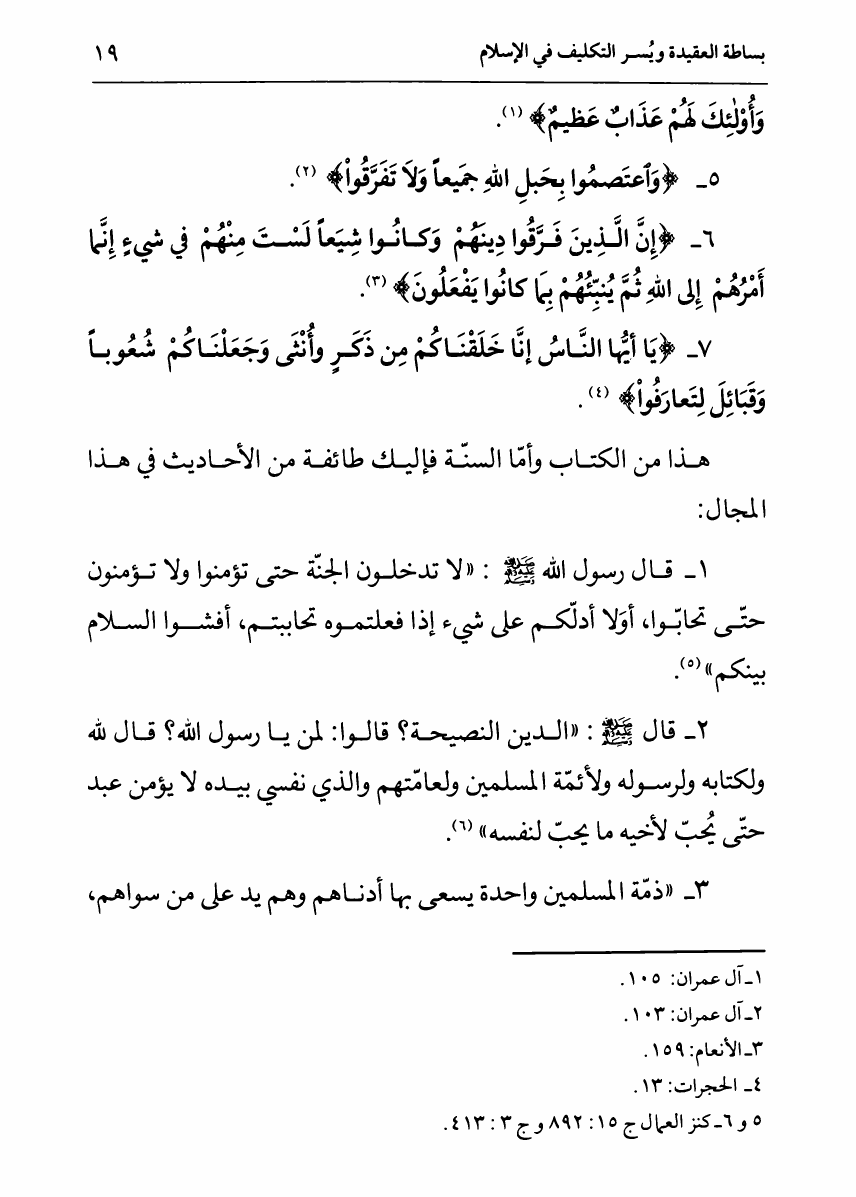 بساطة العقيدة ويُسـر التكليف في الإسلام ١٩
وَأُوْلٰئِكَ لَهُمْ عَذَابٌ عَظيمٌ﴾ (١).
٥ـ ﴿وَٱعتَصمُوا بِحَبلِ اللهِ جمَيعاً وَلاَ تَفَرَّقُواْ﴾ (٢).
٦ـ ﴿إِنَّ الَّـذِينَ فَـرَّقُوا دِينَهُمْ وَكـانُـوا شِيَعاً لَسْـتَ مِنْهُمْ في شيءٍ إِنَّما
أَمْرُهُمْ إِلى اللهِ ثُمَّ يُنبِّئُهُمْ بِمَا كانُوا يَفْعَلُونَ﴾ (٣).
٧ـ ﴿يَا أيُّها النَّـاسُ إنَّا خَلَقْنَـاكُمْ مِن ذَكَـرٍ وأُنْثَى وَجَعَلْنَـاكُمْ شُعُوبـاً
وَقَبَائِلَ لِتَعارَفُواْ﴾ (٤).
هـذا من الكتـاب وأمّا السنّـة فإليـك طائفـة من الأحـاديث في هـذا
المجال:
١ـ قـال رسول الله ﷺ : «لا تدخلـون الجنّة حتى تؤمنوا ولا تـؤمنون
حتّـى تحابّـوا، أوَلا أدلّكـم على شيء إذا فعلتمـوه تحاببتـم، أفشـوا السـلام
بينكم» (٥).
٢ـ قال ﷺ : «الـدين النصيحـة؟ قالـوا: لمن يـا رسول الله؟ قـال لله
ولكتابه ولرسـوله ولأئمّة المسلمين ولعامّتهم والذي نفسي بيـده لا يؤمن عبد
حتّى يُحبّ لأخيه ما يحبّ لنفسه» (٦).
٣ـ «ذمّة المسلمين واحدة يسعى بها أدنـاهم وهم يد على من سواهم،
١ـ آل عمران: ١٠٥.
٢ـ آل عمران: ١٠٣.
٣ـ الأنعام: ١٥٩.
٤ـ الحجرات: ١٣.
٥ و ٦ـ كنز العمال ج ١٥: ٨٩٢ و ج ٣: ٤١٣.